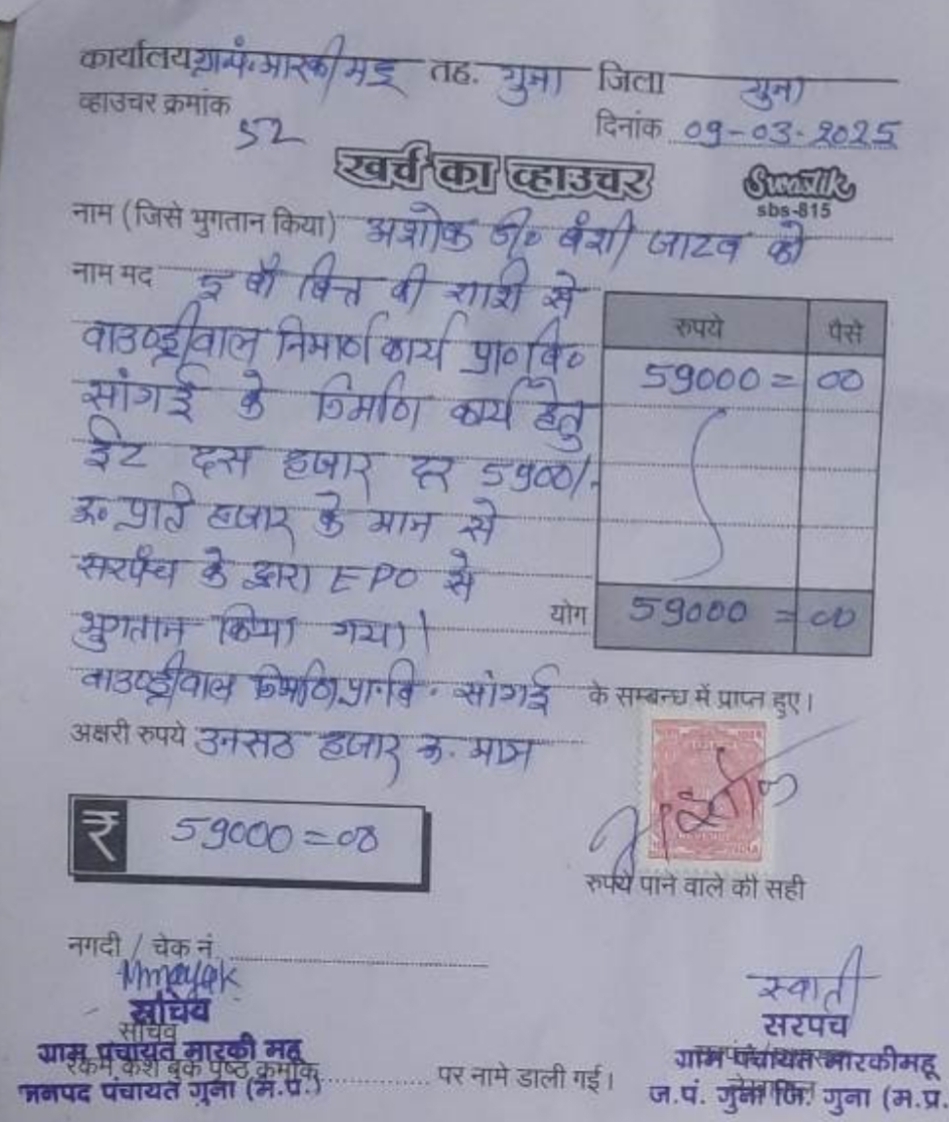 कार्यालय ग्रा.पं. मारकीमहू तह. गुना जिला गुना
व्हाउचर क्रमांक 52
दिनांक 09-03-2025
खर्च का व्हाउचर
Swastik
sbs-815
नाम (जिसे भुगतान किया) अशोक S/o बंशी जाटव को
नाम मद 5 वी वित्त की राशी से
रुपये पैसे
वाउण्ड्रीवाल निमार्ण कार्य प्रा०वि०
59000 = 00
सांगई के निर्माण कार्य हेतु
ईट दस हजार दर 5900/-
रू० प्रति हजार के मान से
सरपंच के द्वारा EPO से
योग 59000 = 00
भुगतान किया गया।
वाउण्ड्रीवाल निर्माण प्रा.वि. सांगई के सम्बन्ध में प्राप्त हुए।
अक्षरी रुपये उनसठ हजार रू. मात्र
₹ 59000=00
अशोक
रुपये पाने वाले की सही
नगदी / चेक नं.
सचिव
सचिव
ग्राम पंचायत मारकी महू
रकम केश बुक पृष्ठ क्रमांक पर नामे डाली गई।
जनपद पंचायत गुना (म.प्र.)
स्वाती
सरपंच
ग्राम पंचायत मारकीमहू
ज.पं. गुना जि. गुना (म.प्र.